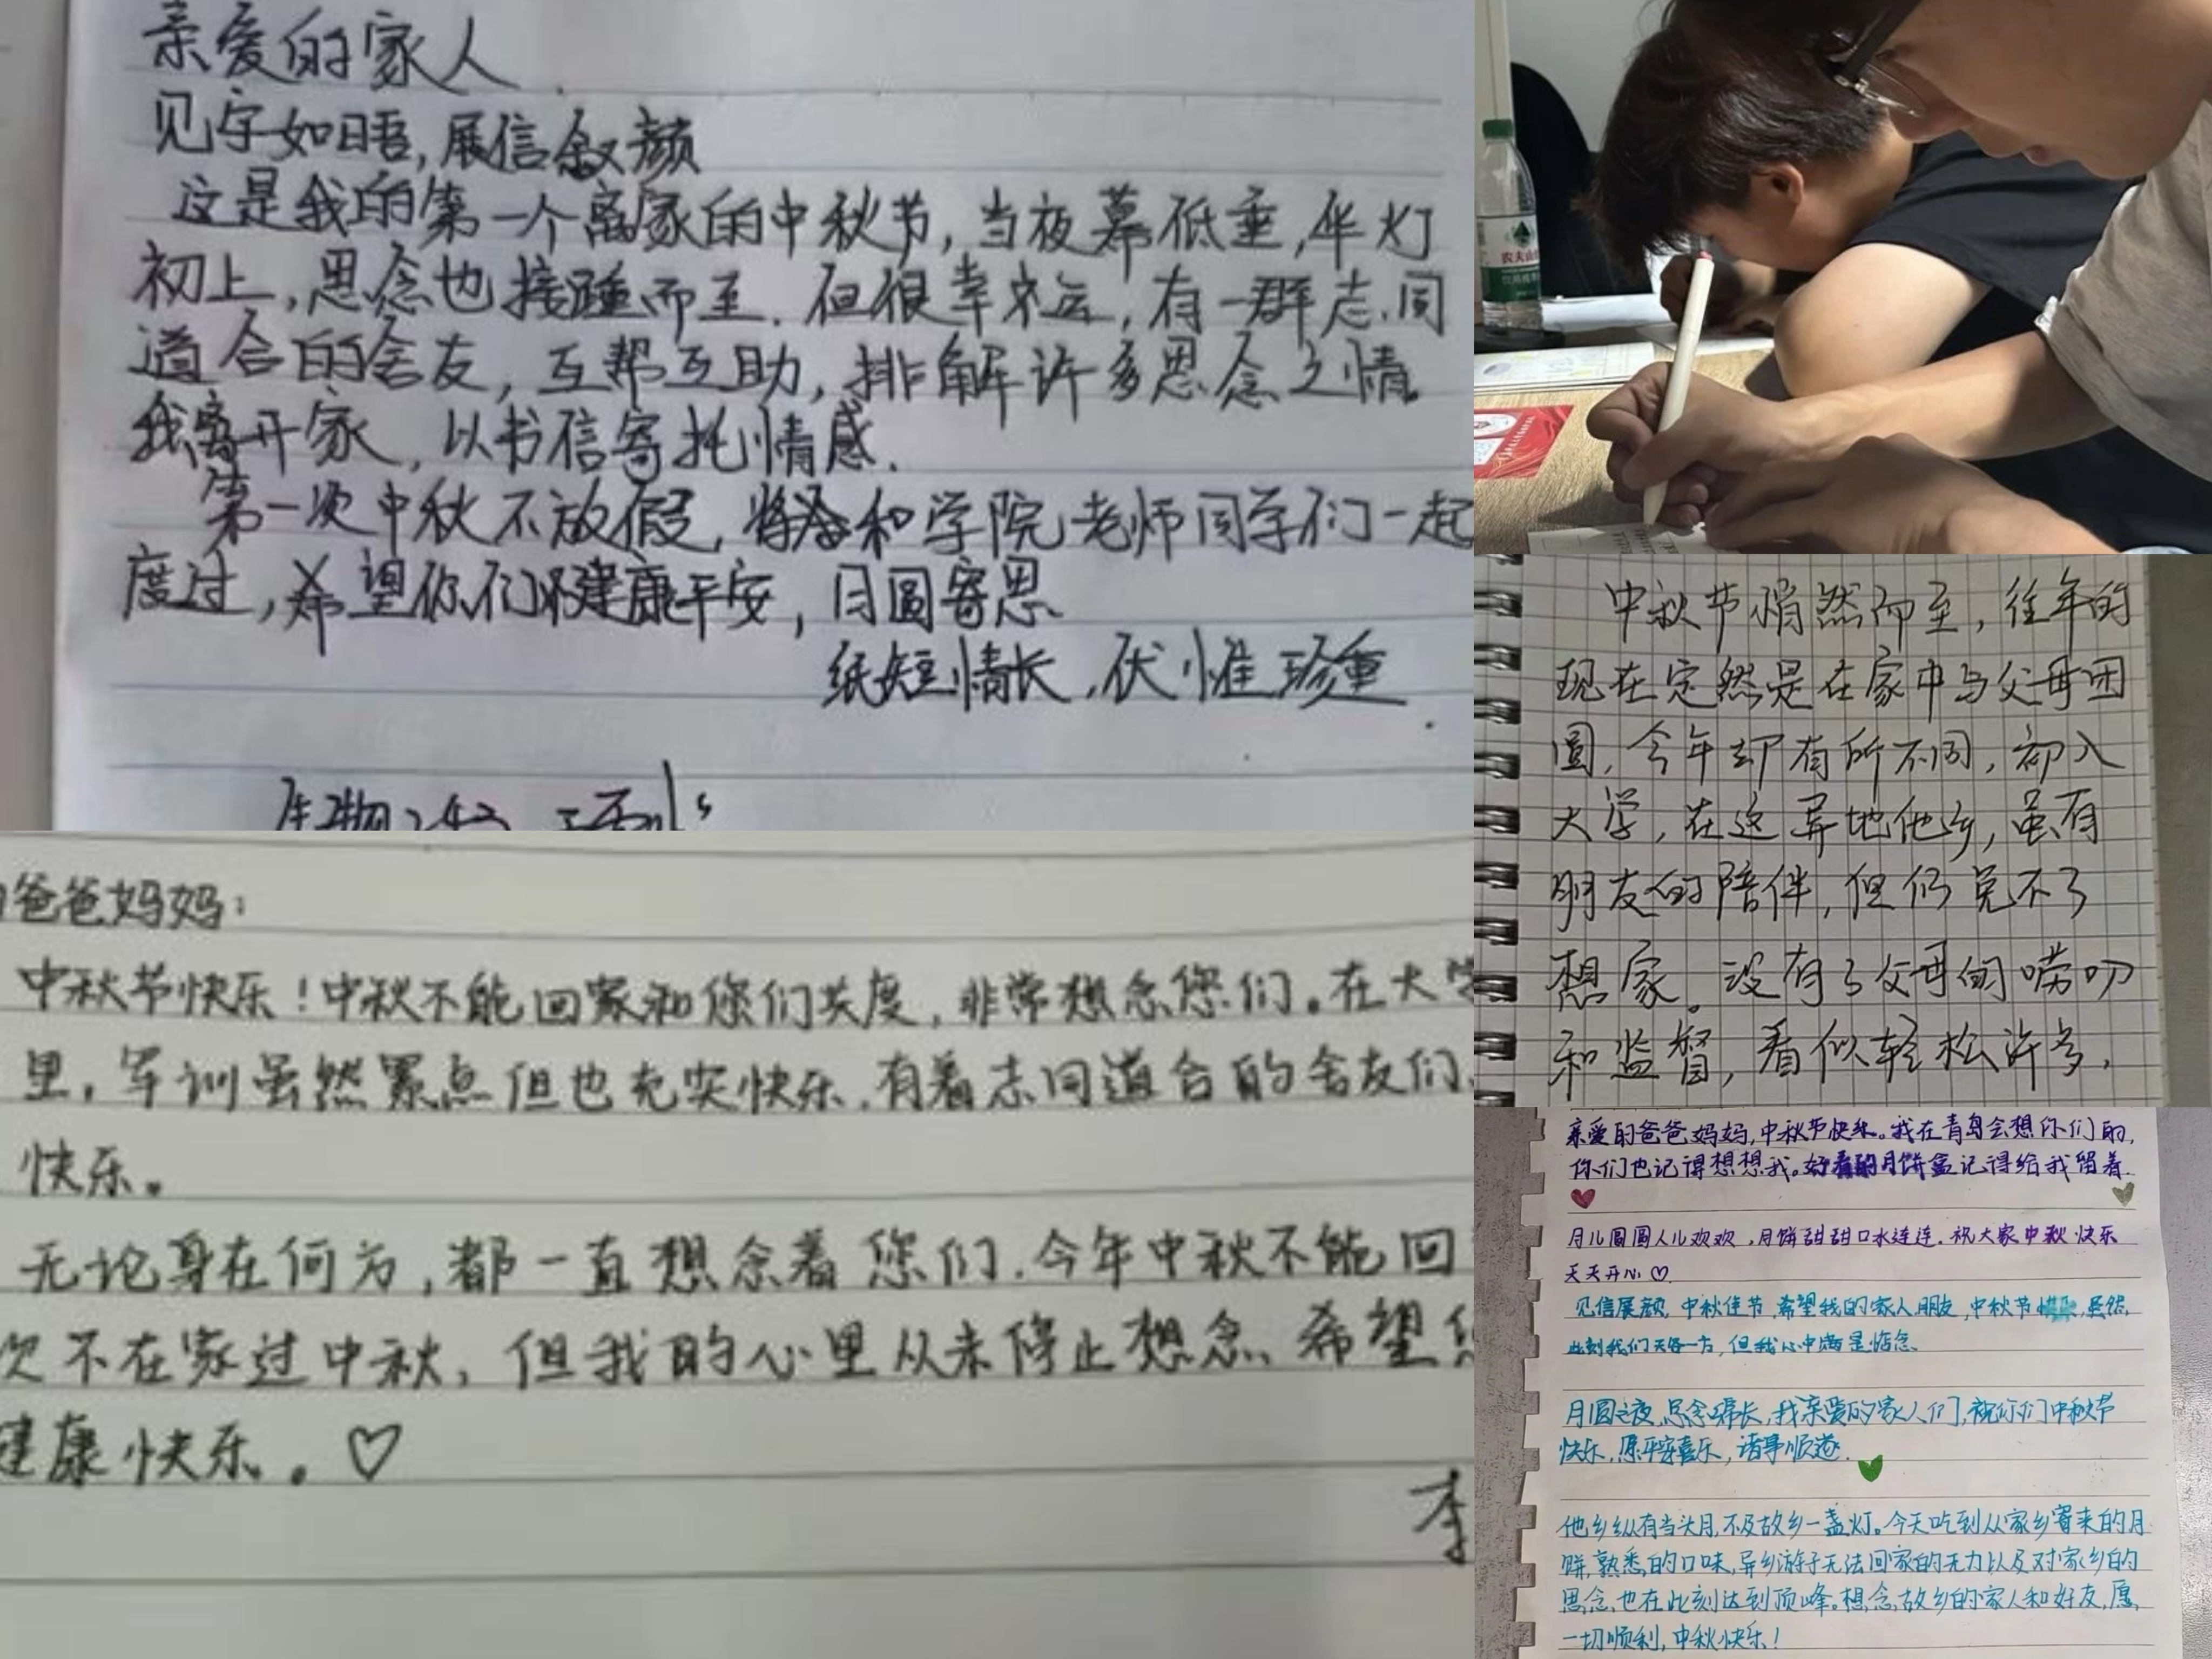 亲爱的家人
见字如晤,展信舒颜
这是我的第一个离家的中秋节,当夜幕低垂,华灯
初上,思念也接踵而至.但很幸运,有一群志同
道合的舍友,互帮互助,排解许多思念之情。
我离开家,以书信寄托情感.
第一次中秋不放假,将和学院老师同学们一起
度过,希望你们健康平安,月圆寄思
纸短情长,伏惟珍重.
生物243
爸爸妈妈:
中秋节快乐!中秋不能回家和您们共度,非常想念您们。在大学
里,军训虽然累点但也充实快乐.有着志同道合的舍友们
快乐。
无论身在何方,都一直想念着您们.今年中秋不能回
次不在家过中秋,但我的心里从未停止想念、希望您
健康快乐。♡
李
农夫山泉
中秋节悄然而至,往年的
现在定然是在家中与父母团
圆,今年却有所不同,初入
大学,在这异地他乡,虽有
朋友的陪伴,但仍免不了
想家。没有了父母的唠叨
和监督,看似轻松许多,
亲爱的爸爸妈妈,中秋节快乐。我在青岛会想你们的,
你们也记得想想我。好看的月饼盒记得给我留着.
月儿圆圆人儿欢欢,月饼甜甜口水连连.祝大家中秋快乐
天天开心♡
见信展颜,中秋佳节,希望我的家人朋友,中秋节,虽然,
此刻我们天各一方,但我心中满是惦念
月圆之夜,思念绵长,我亲爱的家人们,祝你们中秋节
快乐,愿平安喜乐,诸事顺遂.
他乡纵有当头月,不及故乡一盏灯。今天吃到从家乡寄来的月
饼,熟悉的口味,异乡游子无法回家的无力以及对家乡的
思念,也在此刻达到顶峰。想念故乡的家人和好友,愿,
一切顺利,中秋快乐!